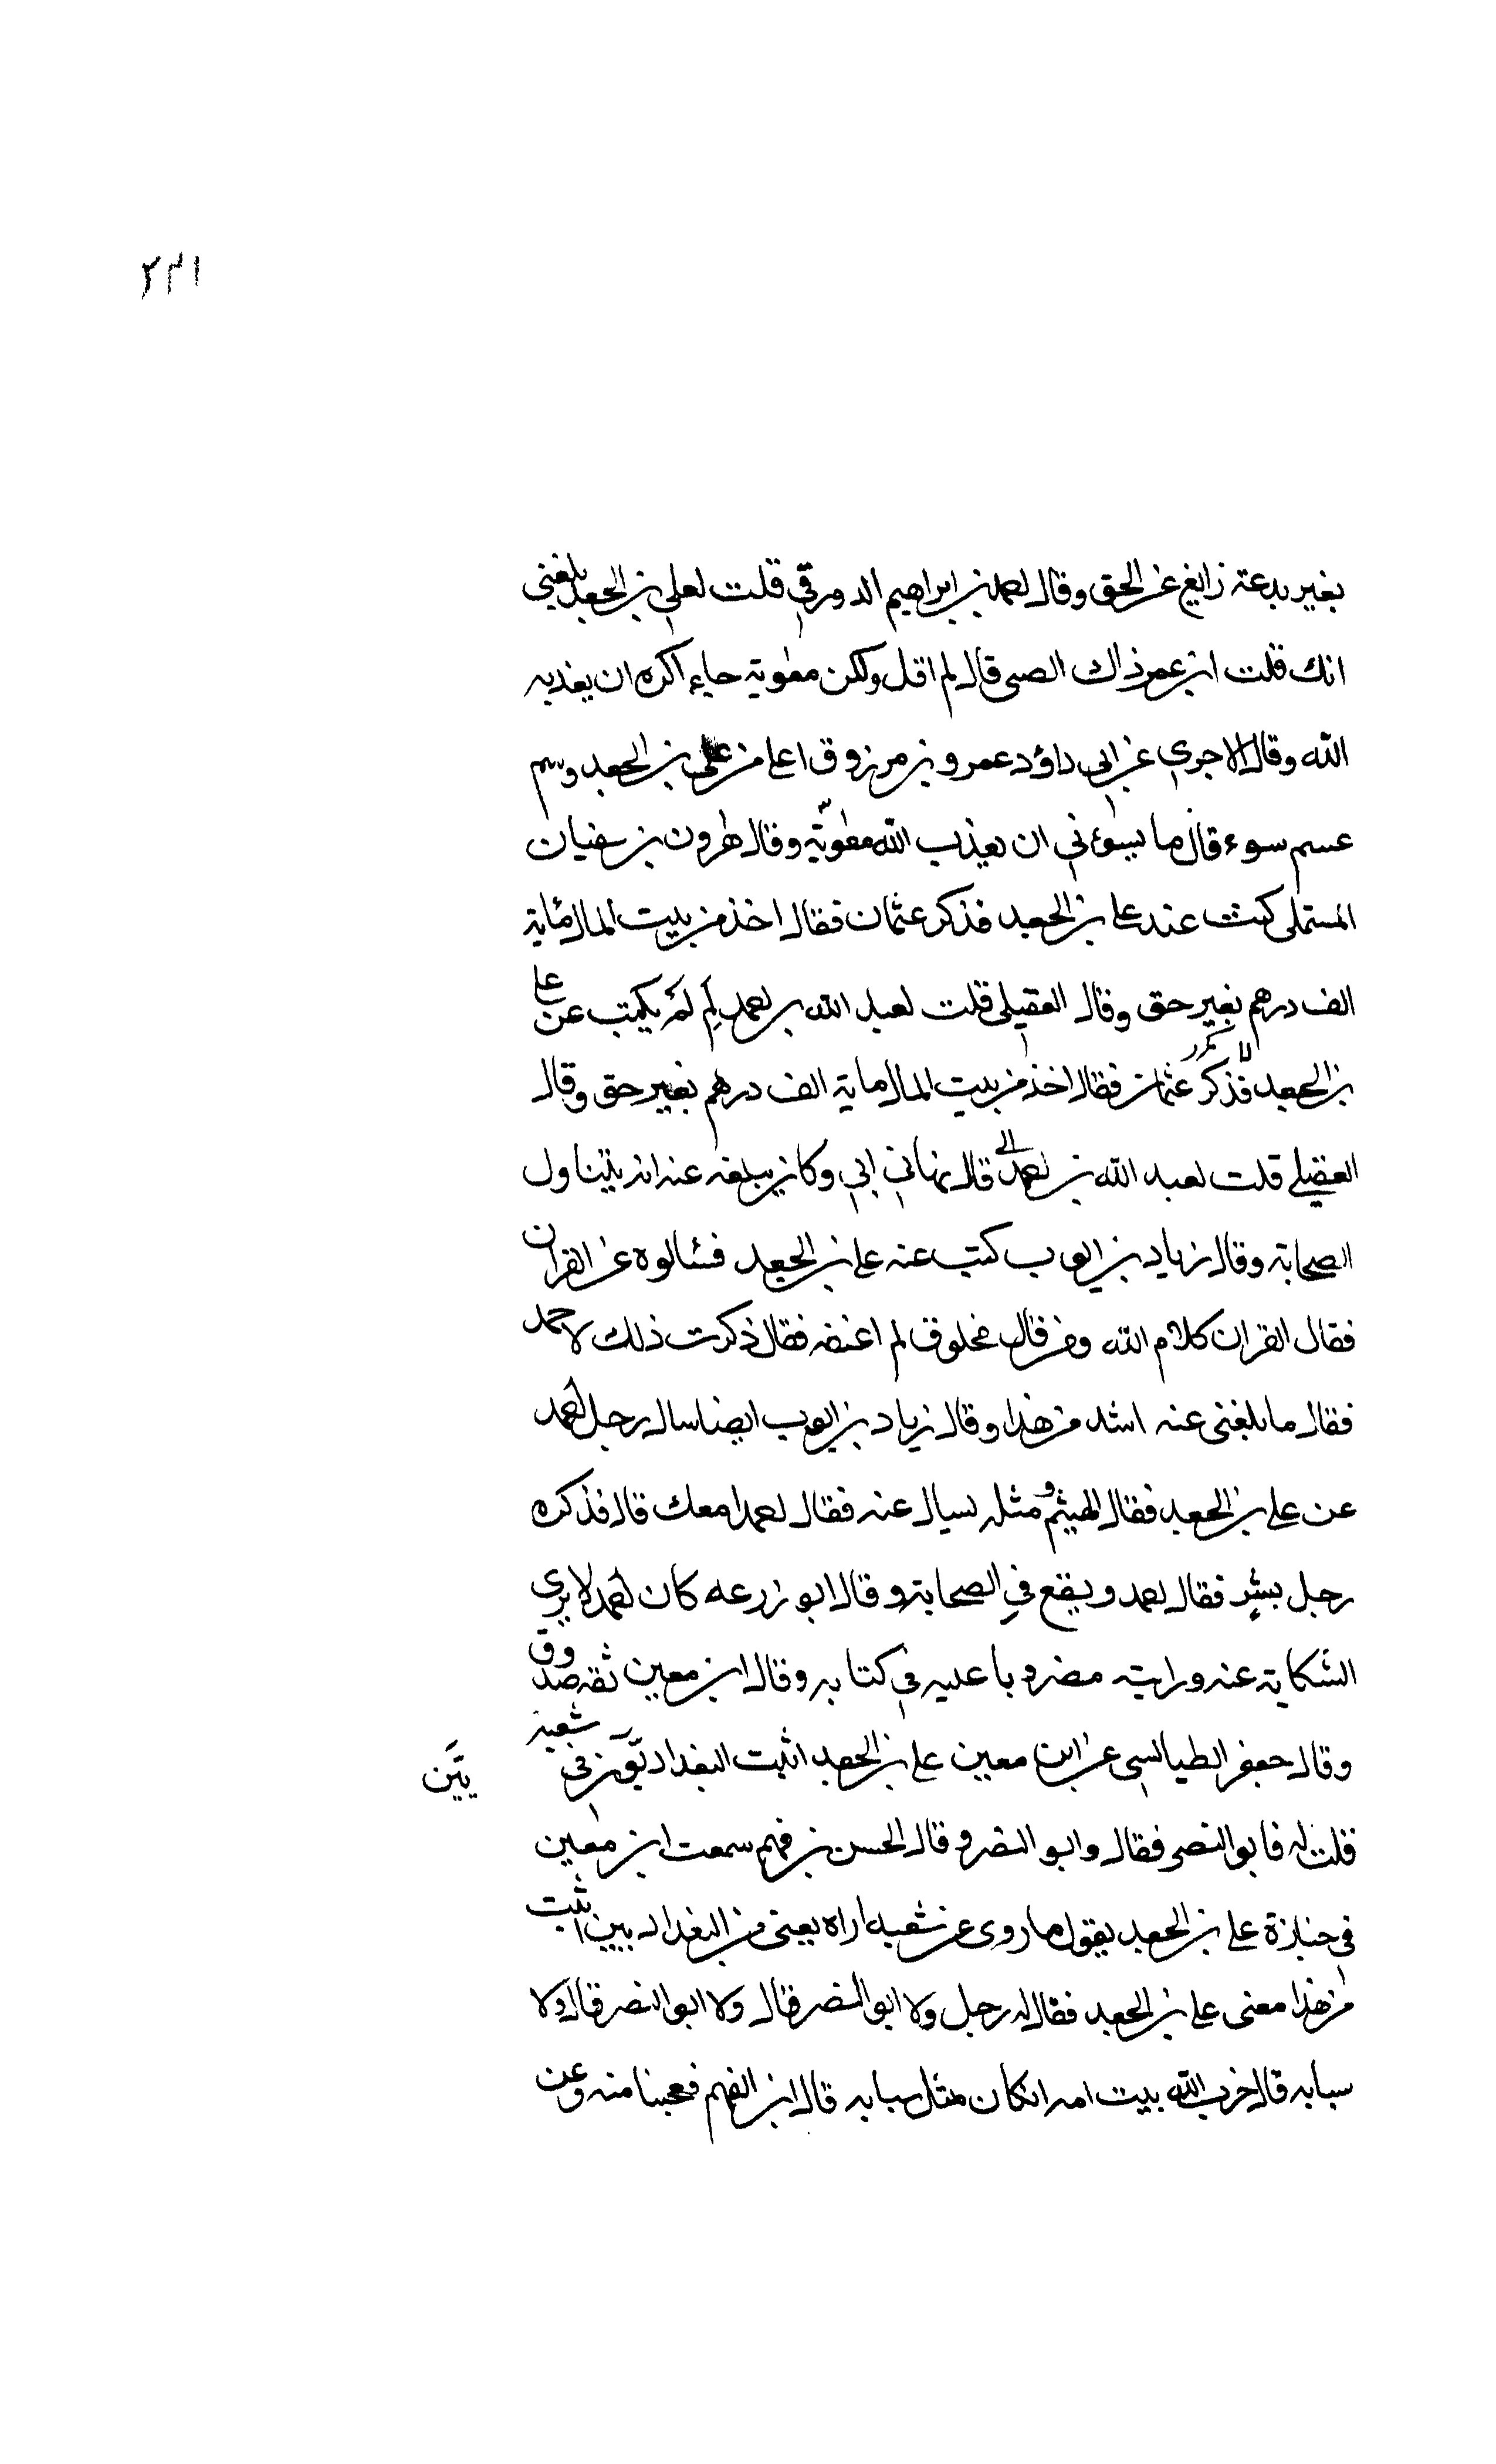 ٢٣١
بغير بدعته زايغ عن الحق وقال احمد بن ابراهيم الدورقي قلت لعلي بن الجعد بلغني
انك قلت ابن عمر ذاك الصبي قال لم اقل ولكن معوية حاء اكره ان يعذبه
الله وقال الاجري عن ابي داؤد عمرو بن مرزوق اعلى من علي بن الجعد وسم
عسم سوء قال ما يسؤني ان يعذب الله معوية وقال هرون بن سفيان
المستملي كنت عند علي بن الجعد فذكر عثمان فقال اخذ من بيت المال مائة
الف درهم بغير حق وقال العقيلي قلت لعبد الله بن احمد لِمَ لَمْ يكتب عن علي
بن الجعد فذكر عثمان فقال اخذ من بيت المال ماية الف درهم بغير حق وقال
لا مكرر
العقيلي قلت لعبد الله بن احمد الى قال نهاني ابي وكان يبلغه عنه انه يتناول
الصحابة وقال زياد بن ايوب كتب عنه علي بن الجعد فسالوه عن القران
فقال القران كلام الله ومن قال مخلوق لم اعنفه فقال ذكرت ذلك لاحمد
فقال ما بلغني عنه اشد من هذا وقال زياد بن ايوب ايضا سال رجل احمد
عن علي بن الجعد فقال الهيثم ومثله يسال عنه فقال احمد امعك قال فذكره
رجل بشر فقال احمد ويقع في الصحابة وقال ابو زرعه كان احمد لا يرى
الشكاية عنه ورايته مضروبا عليه في كتابه وقال ابن معين ثقه صدوق
وقال جعفر الطيالسي عن ابن معين علي بن الجعد اثبت البغداديّون في شعبة
يتَين
قلت له فابو النصر فقال وابو النضر وقال الحسن بن فهم سمعت ابن معين
في جنازة علي بن الجعد يقول ما روى عن شعبه اراه يعني من البغداديين اثبت
من هذا معنى علي بن الجعد فقال له رجل ولا ابو النضر قال ولا ابو النضر قال ولا
سبابه قال خرب الله بيت امه ان كان مثل سبابه قال ابن الفهم فعجبنا منه وعن